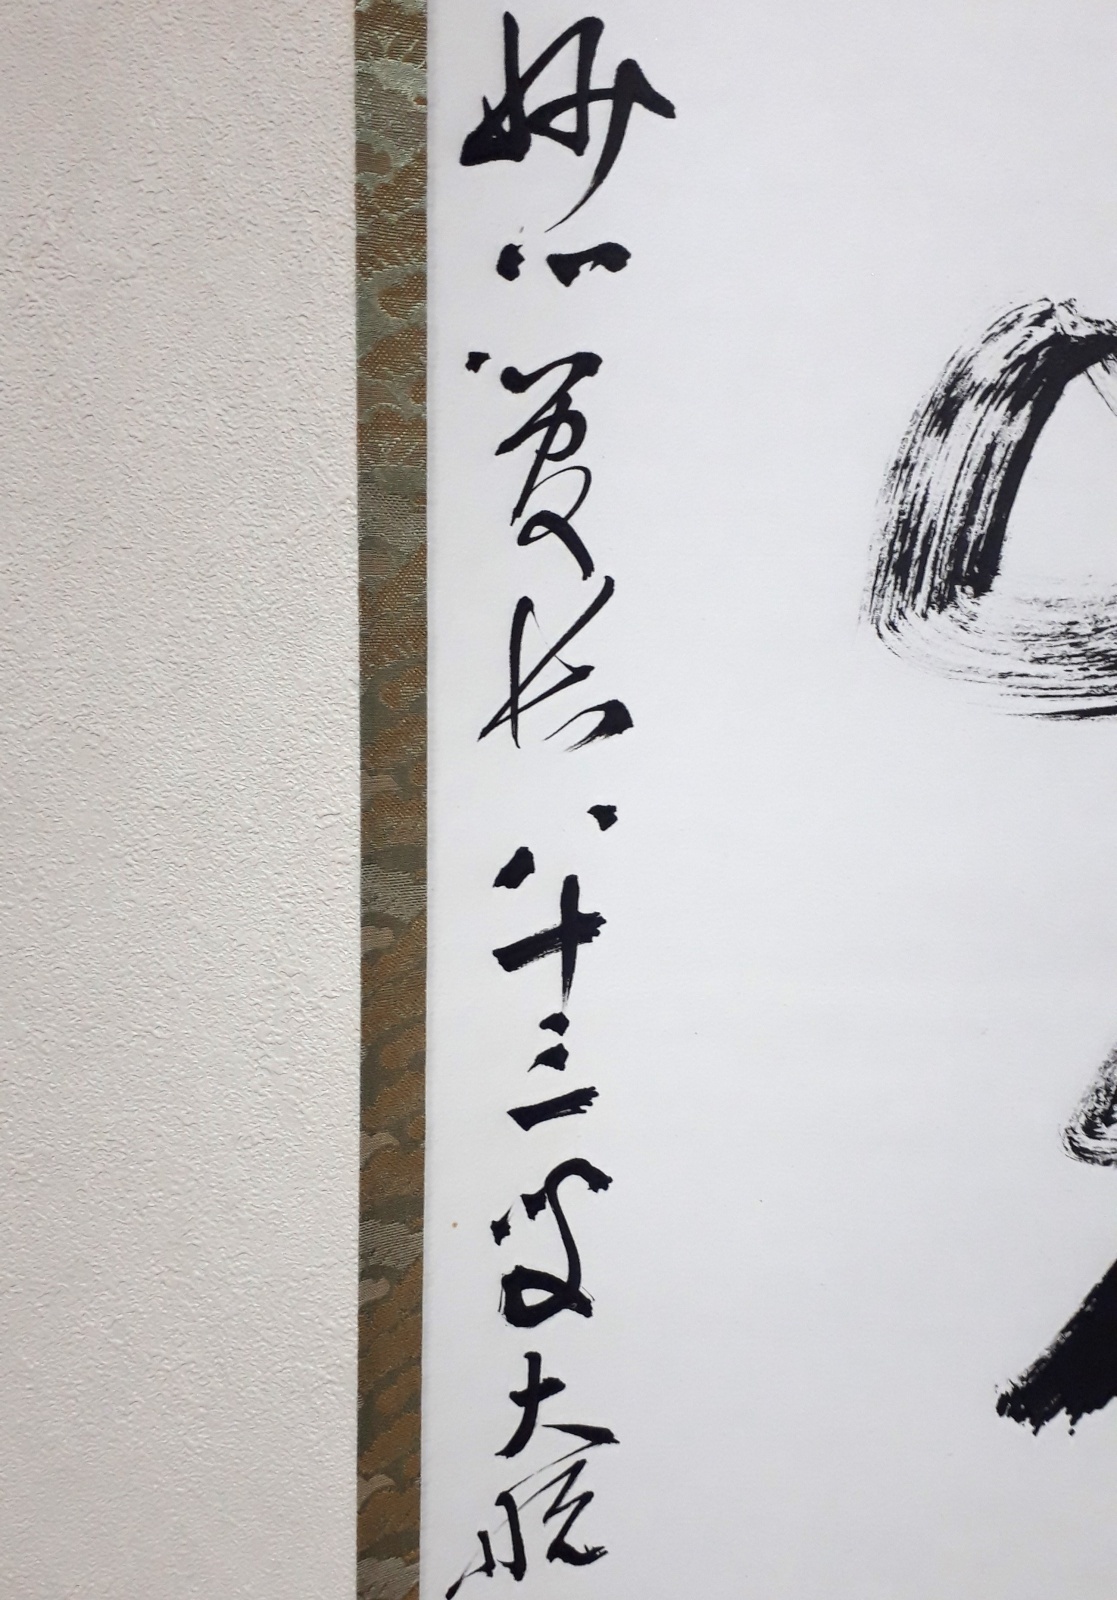 妙心管長八十三叟大航